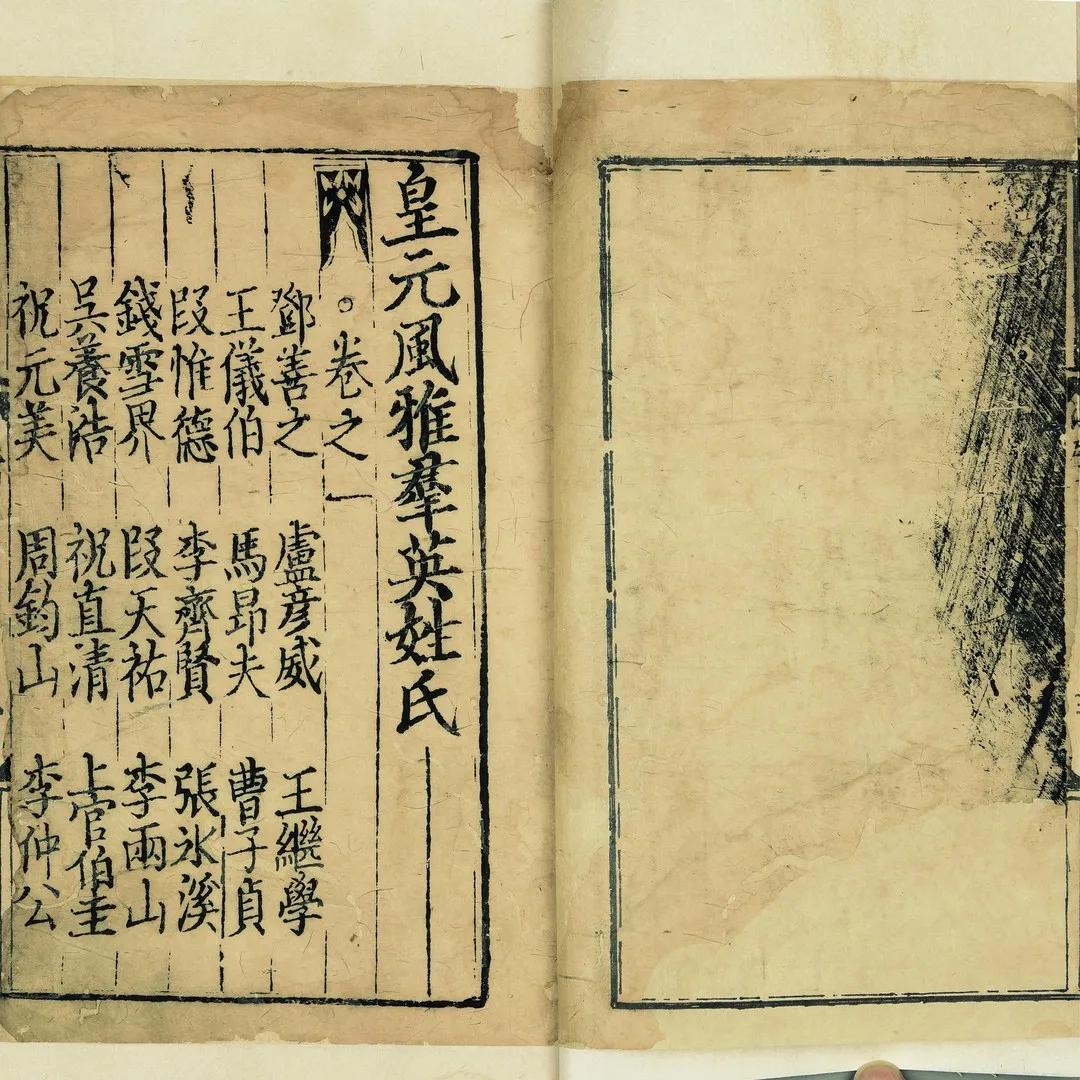 皇元風雅羣英姓氏
卷之一
鄧善之 盧彥威 王繼學
王儀伯 馬昻夫 曹子貞
段惟德 李齊賢 張氷溪
錢雪界 段天祐 李雨山
吳養浩 祝直清 上官伯圭
祝元美 周鈞山 李仲公